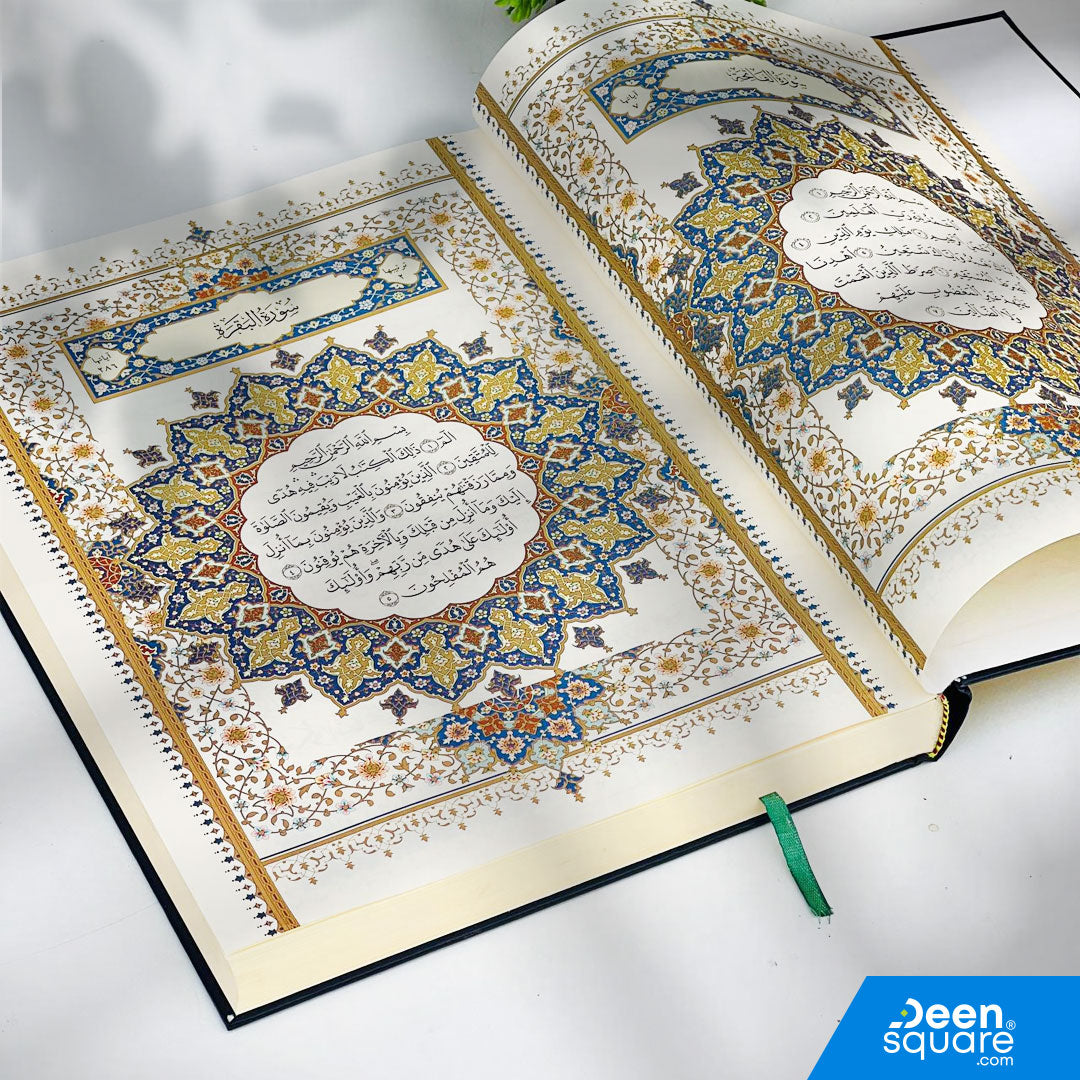 سُورَةُ الفَاتِحَةِ
بِسْمِ ٱللَّهِ ٱلرَّحْمَٰنِ ٱلرَّحِيمِ ١
ٱلْعَٰلَمِينَ ٢
ٱلدِّينِ
نَسْتَعِينُ ٥ ٱهْدِنَا
صِرَٰطَ ٱلَّذِينَ أَنْعَمْتَ
عَلَيْهِمْ غَيْرِ ٱلْمَغْضُوبِ عَلَيْهِمْ
وَلَا ٱلضَّآلِّينَ ٧
سُورَةُ البَقَرَةِ
بِسْمِ ٱللَّهِ ٱلرَّحْمَٰنِ ٱلرَّحِيمِ
الٓمٓ ١ ذَٰلِكَ ٱلْكِتَٰبُ لَا رَيْبَ ۛ فِيهِ ۛ هُدًى
لِّلْمُتَّقِينَ ٢ ٱلَّذِينَ يُؤْمِنُونَ بِٱلْغَيْبِ وَيُقِيمُونَ ٱلصَّلَوٰةَ
وَمِمَّا رَزَقْنَٰهُمْ يُنفِقُونَ ٣ وَٱلَّذِينَ يُؤْمِنُونَ بِمَآ أُنزِلَ
إِلَيْكَ وَمَآ أُنزِلَ مِن قَبْلِكَ وَبِٱلْءَاخِرَةِ هُمْ يُوقِنُونَ ٤
أُو۟لَٰٓئِكَ عَلَىٰ هُدًى مِّن رَّبِّهِمْ ۖ وَأُو۟لَٰٓئِكَ
هُمُ ٱلْمُفْلِحُونَ ٥
Deen
square®
.com